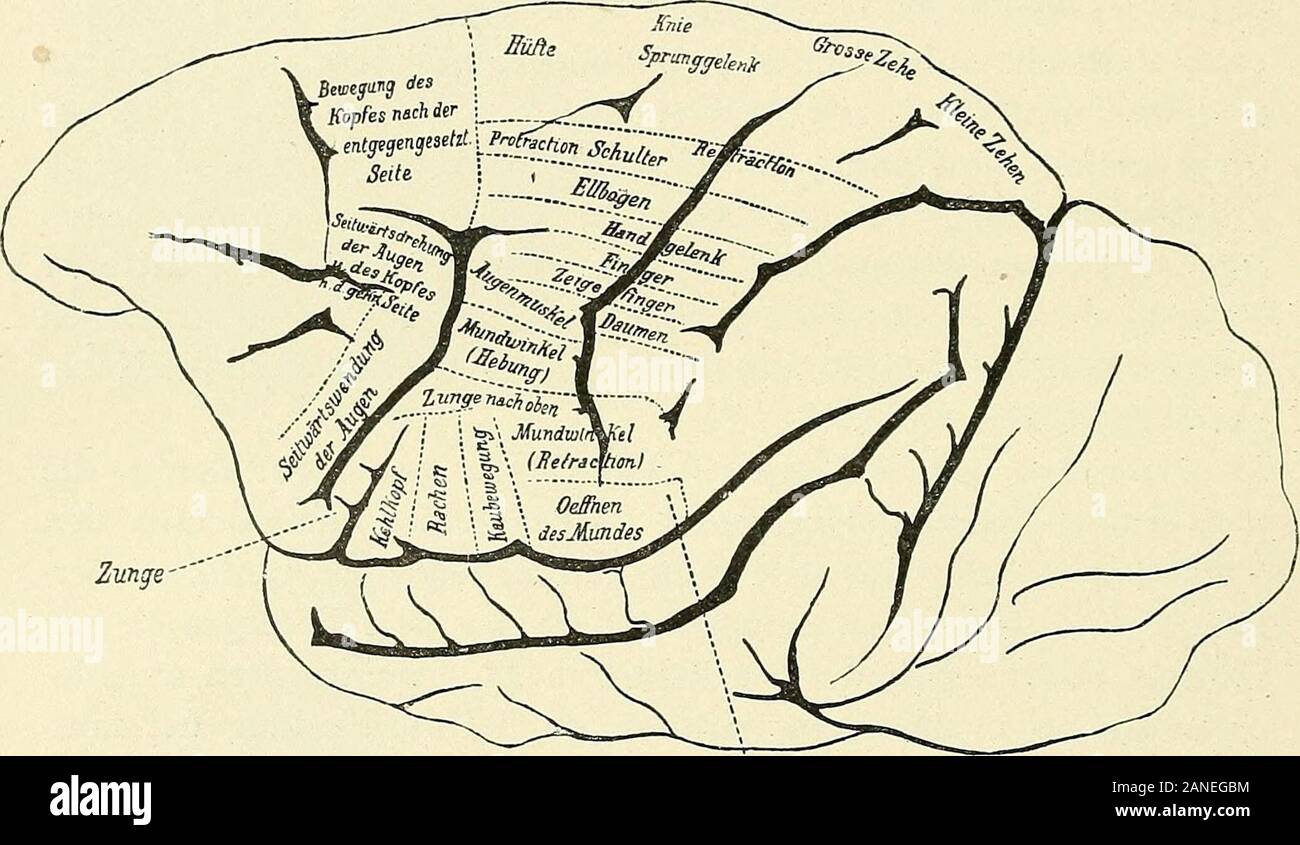 Hüfte
Knie
Sprunggelenk
Grosse Zehe
Kleine Zehen
Bewegung des
Kopfes nach der
entgegengesetzt.
Seite
Protraction Schulter Retraction
Ellbogen
Handgelenk
Finger
Zeigefinger
Daumen
Seitwärtsdrehung
der Augen
u. des Kopfes
n. d. gehn. Seite
Augenmuskel
Mundwinkel
(Hebung)
Seitwärtswendung
der Augen
Zunge nach oben
Mundwinkel
(Retraction)
Kehlkopf
Rachen
Kaubewegung
Oeffnen
des Mundes
Zunge
alamy
alamy
alamy
Image ID: 2ANEGBM
www.alamy.com